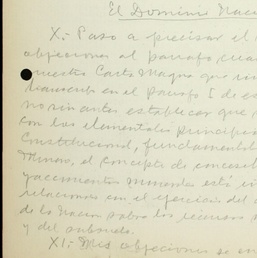 El Dominio Naci
X.- Paso a precisar el
objeciones al párrafo cua
nuestra Carta Magna que
en el Párrafo I de es
no sin antes establecer que
con los elementales principios
Constitucional, fundamental
Minas, el concepto de conces
yacimientos minerales está
relacionado con el ejercicio del
de la Nación sobre los recursos
y del subsuelo.
XI.- Mis objeciones se